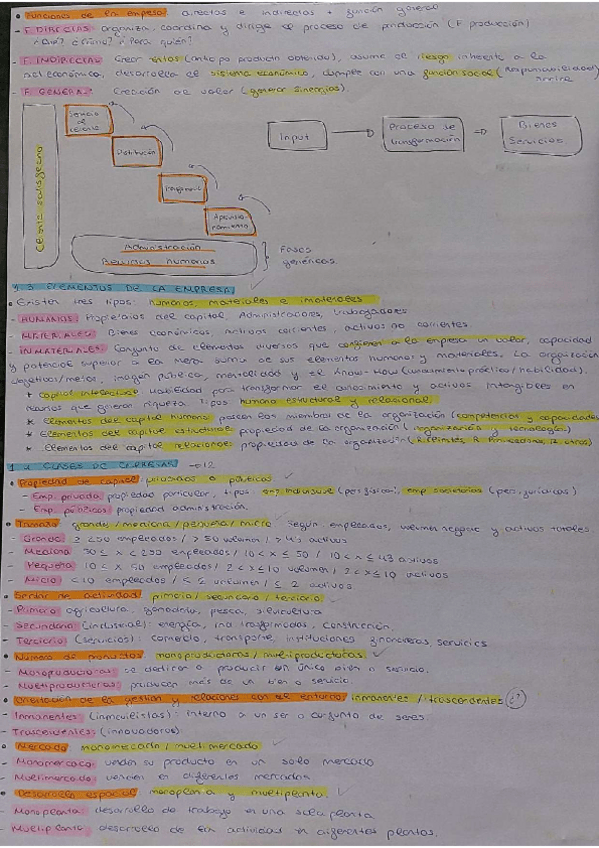 • Funciones de la empresa: directas e indirectas + función general
- F. DIRECTAS: organiza, coordina y dirige el proceso de producción (F. producción)
¿Qué? ¿Cómo? ¿Para quién?
- F. INDIRECTAS: Crear (anticipo producto obtenido), asume el riesgo inherente a la
act económica, desarrolla el sistema económico, cumple con una función social (Responsabilidad)
- F. GENERAL: Creación de valor (generar sinergias).
Cliente satisfecho
Input
Proceso de transformación
Bienes Servicios
Administración
Recursos humanos
Fases genéricas.
1.3 ELEMENTOS DE LA EMPRESA
• Existen tres tipos: humanos, materiales e inmateriales
- HUMANOS: Propietarios del capital, Administradores, trabajadores
- MATERIALES: Bienes económicos, activos corrientes, activos no corrientes.
- INMATERIALES: Conjunto de elementos diversos que confieren a la empresa un valor, capacidad
y potencial superior a la mera suma de sus elementos humanos y materiales. La organización
objetivos/metas, imagen pública, mentalidad y el Know-How (conocimiento práctico/habilidades).
* capital intelectual habilidad para transformar el conocimiento y activos intangibles en
recursos que generen riqueza. Tipos humano estructural y relacional.
* Elementos del capital humano: poseen los miembros de la organización (competencias y capacidades)
* Elementos del capital estructural: propiedad de la organización (organización y tecnología)
* Elementos del capital relacional: propiedad de la organización (R. clientes, R. proveedores, R. otros)
CLASES DE EMPRESAS → p12
• Propiedad de capital: privadas o públicas.
- Emp. privada: propiedad particular, tipos: emp. individuales (per. físicas), emp. societarias (per. jurídicas)
- Emp. públicas: propiedad administración.
• Tamaño: grandes / mediana / pequeña / micro según empleados, volumen negocio y activos totales.
- Grande: ≥ 250 empleados / > 50 volumen / > 43 activos
- Mediana: 50 ≤ x < 250 empleados / 10 < x ≤ 50 / 10 < x ≤ 43 activos
- Pequeña: 10 ≤ x 50 empleados / 2 < x ≤ 10 volumen / 2 < x ≤ 10 activos
- Micro: < 10 empleados / ≤ 2 volumen / ≤ 2 activos
• Sector de actividad: primario / secundario / terciario
- Primario: agricultura, ganadería, pesca, silvicultura
- Secundario (industrial): energía, ind. transformados, construcción.
- Terciario (servicios): comercio, transporte, instituciones financieras, servicios
• Número de productos: monoproductoras / multiproductoras.
- Monoproductoras: se dedican a producir un único bien o servicio.
- Multiproductoras: producen más de un bien o servicio
• Orientación de la gestión y relaciones con el entorno: inmanentes / trascendentes ¿?
- Inmanentes: (inmovilistas): interno a un ser o conjunto de seres.
- Trascendentes: (innovadoras)
• Mercado: monomercado / multimercado
- Monomercado: venden su producto en un solo mercado
- Multimercado: venden en diferentes mercados
• Desarrollo espacial: monoplanta y multiplanta.
- Monoplanta: desarrollo de trabajo en una sola planta
- Multiplanta: desarrollo de su actividad en diferentes plantas.